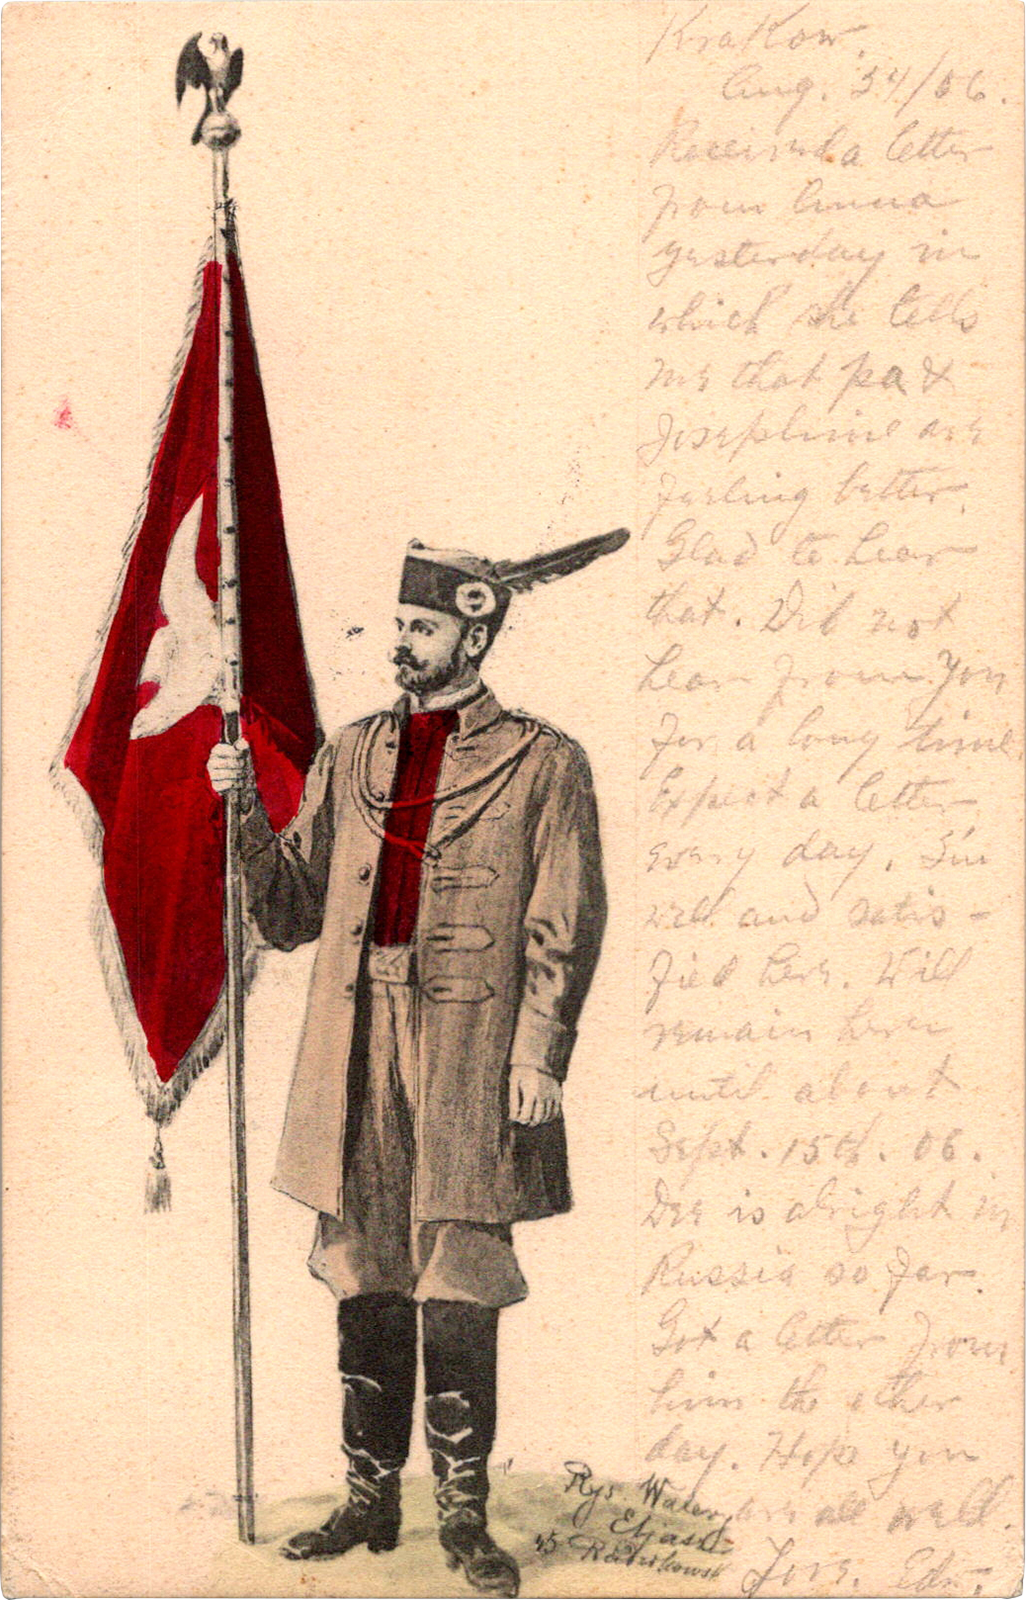 Krakow,
Aug. 24/06.
Received a letter
from Anna
yesterday in
which she tells
me that pa &
Josephine are
feeling better.
Glad to hear
that. Did not
hear from you
for a long time
Expect a letter
every day. I'm
well and satis-
fied here. Will
remain here
until about
Sept. 15th. 06.
Dee is alright in
Russia so far.
Got a letter from
him the other
day. Hope you
are all well.
Edn.
Rys Walery
Eljasz
Radzikowski